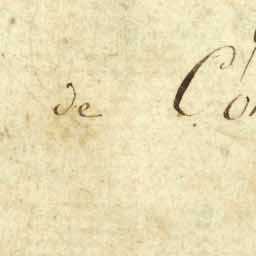 de Con